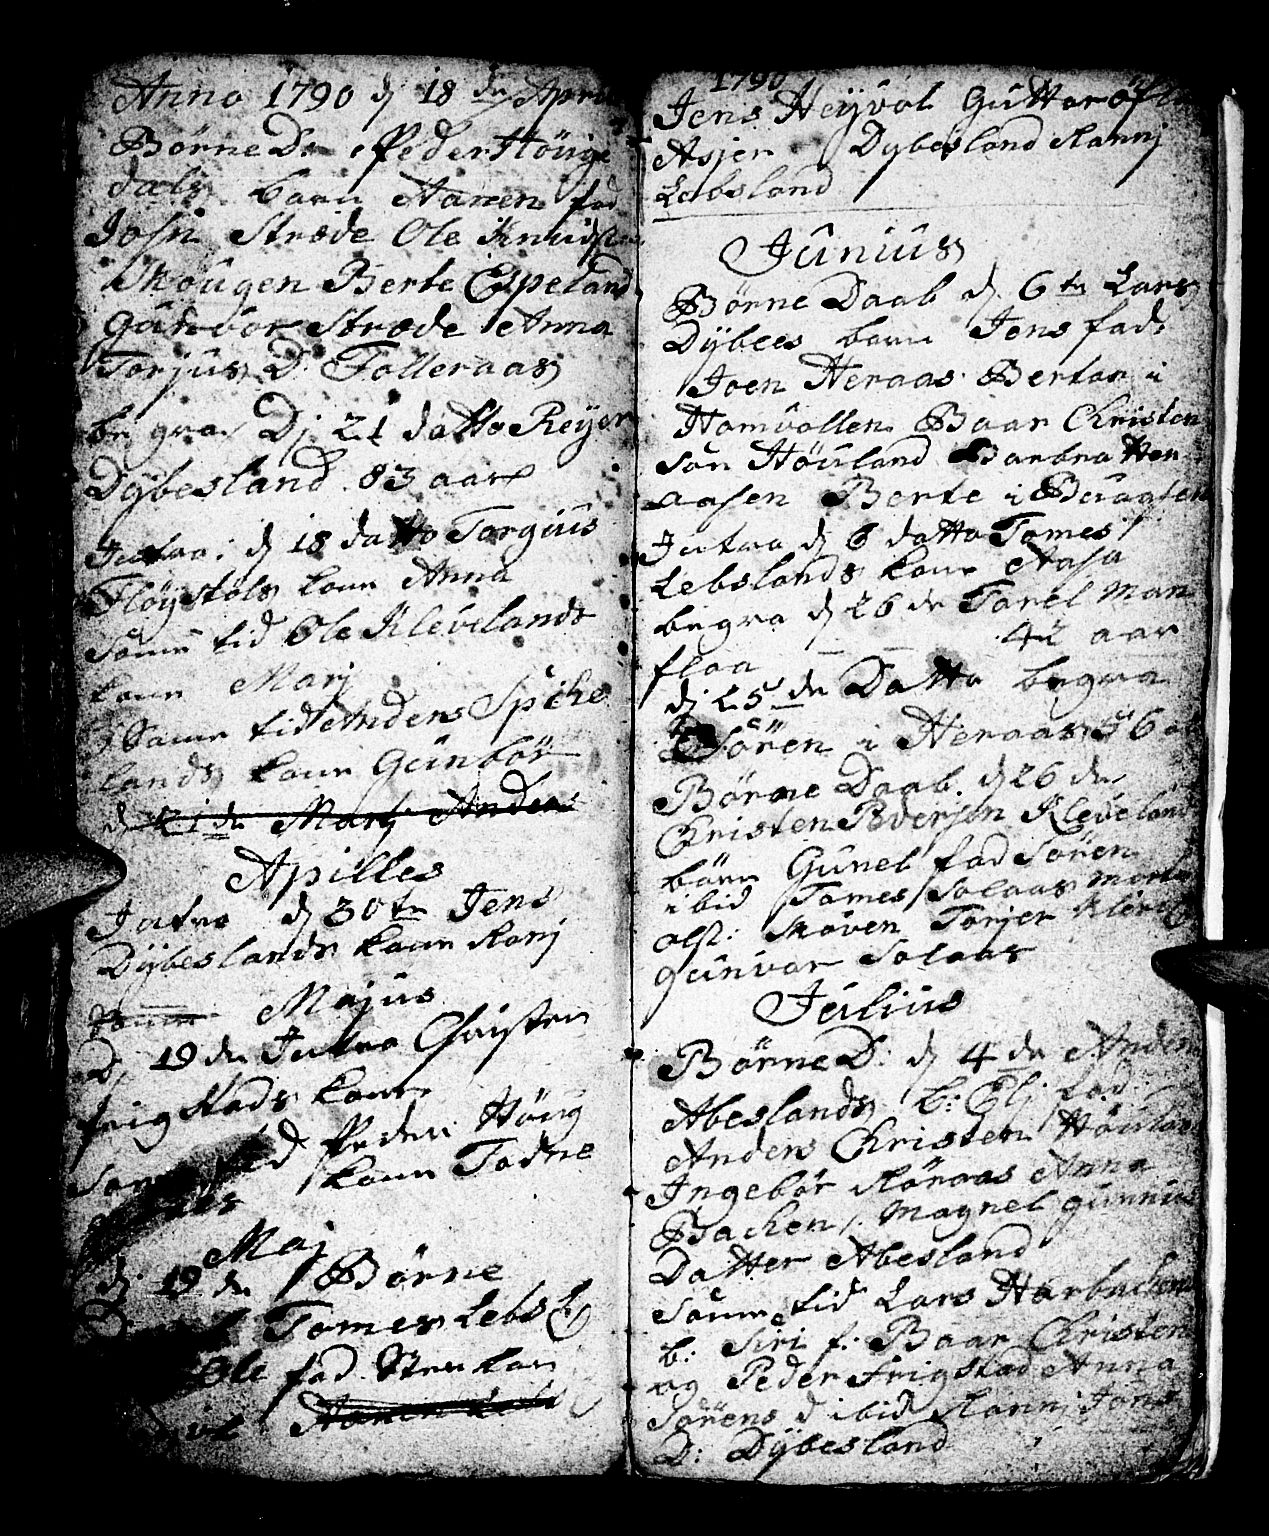 Anno 1790 dj 18 de April
Börne D: Peder Höüge
dals barn Aanen fad
Josn Stræde Ole Knuds
Skougen Berte Espeland
Gunvor Stræde Anna
Torjus D. Folleraas
begra Dj 21 datto Reyer
Dybesland 83 aar
Jntro: dj 18 datto Torgius
Flöystöls kone Anna
Same tid Ole Klevelands
kone Marj
Same tid Andens Spike
lands kone Gunbör
dj 21 de Marj Anders
Apilles
Jntro dj 30te Jens
Dybeslands kone Kanj
Majus
D 19 de Jntro Christen
frigstads kone
Same tid Peder Höüg
kone Todne
Maj
dj 19 de Börne
D Tomes Lebsl
Ole fad
1790
Jens Heyvol Guttor
Asjer Dybesland Kanni
Lebsland
Junius
Börne Daab dj 6te Lars
Dybees barn Jens fad:
Joen Heraas Bertor i
Homvollen Baar Christen
sön Höüland Barbra Hen
aasen Berte i Braaten
Jntro dj 6 datto Tomes
Lebslands kone Aasa
begra dj 26 de Tarel Man
flaa 42 aar
dj 25 de Datto begra
Sören i Heraas 56 a
Börne Daab dj 26 de
Christen Pedersen Kleveland
börn Gunel fad Sören
ibid Tomes Solaas
olst: Sköven Torjer Kleve
Gunvor Solaas
Julius
Börne D: dj 4 de Anders
Abeslands b: Elj fad:
Anders Christen Höüland
Ingebör Köraas Anna
Bachen Magnel Gunnius
Datter Abesland
Same tid Lars Harbachens
b: Siri f: Baar Christen
og Peder Frigstad Anna
Sörens d ibid Kanni Jens
D: Dybesland